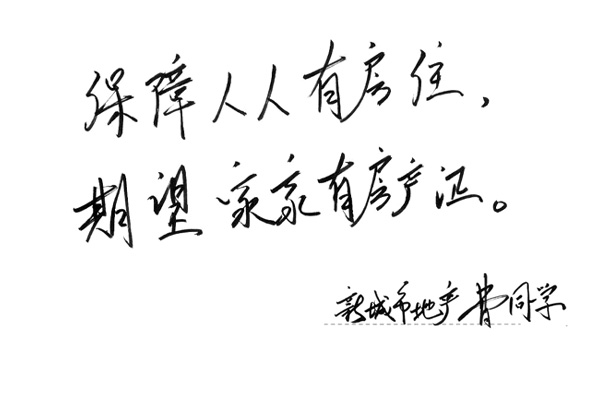 保障人人有房住，
期望家家有房产证。
新城市地产 曹同学